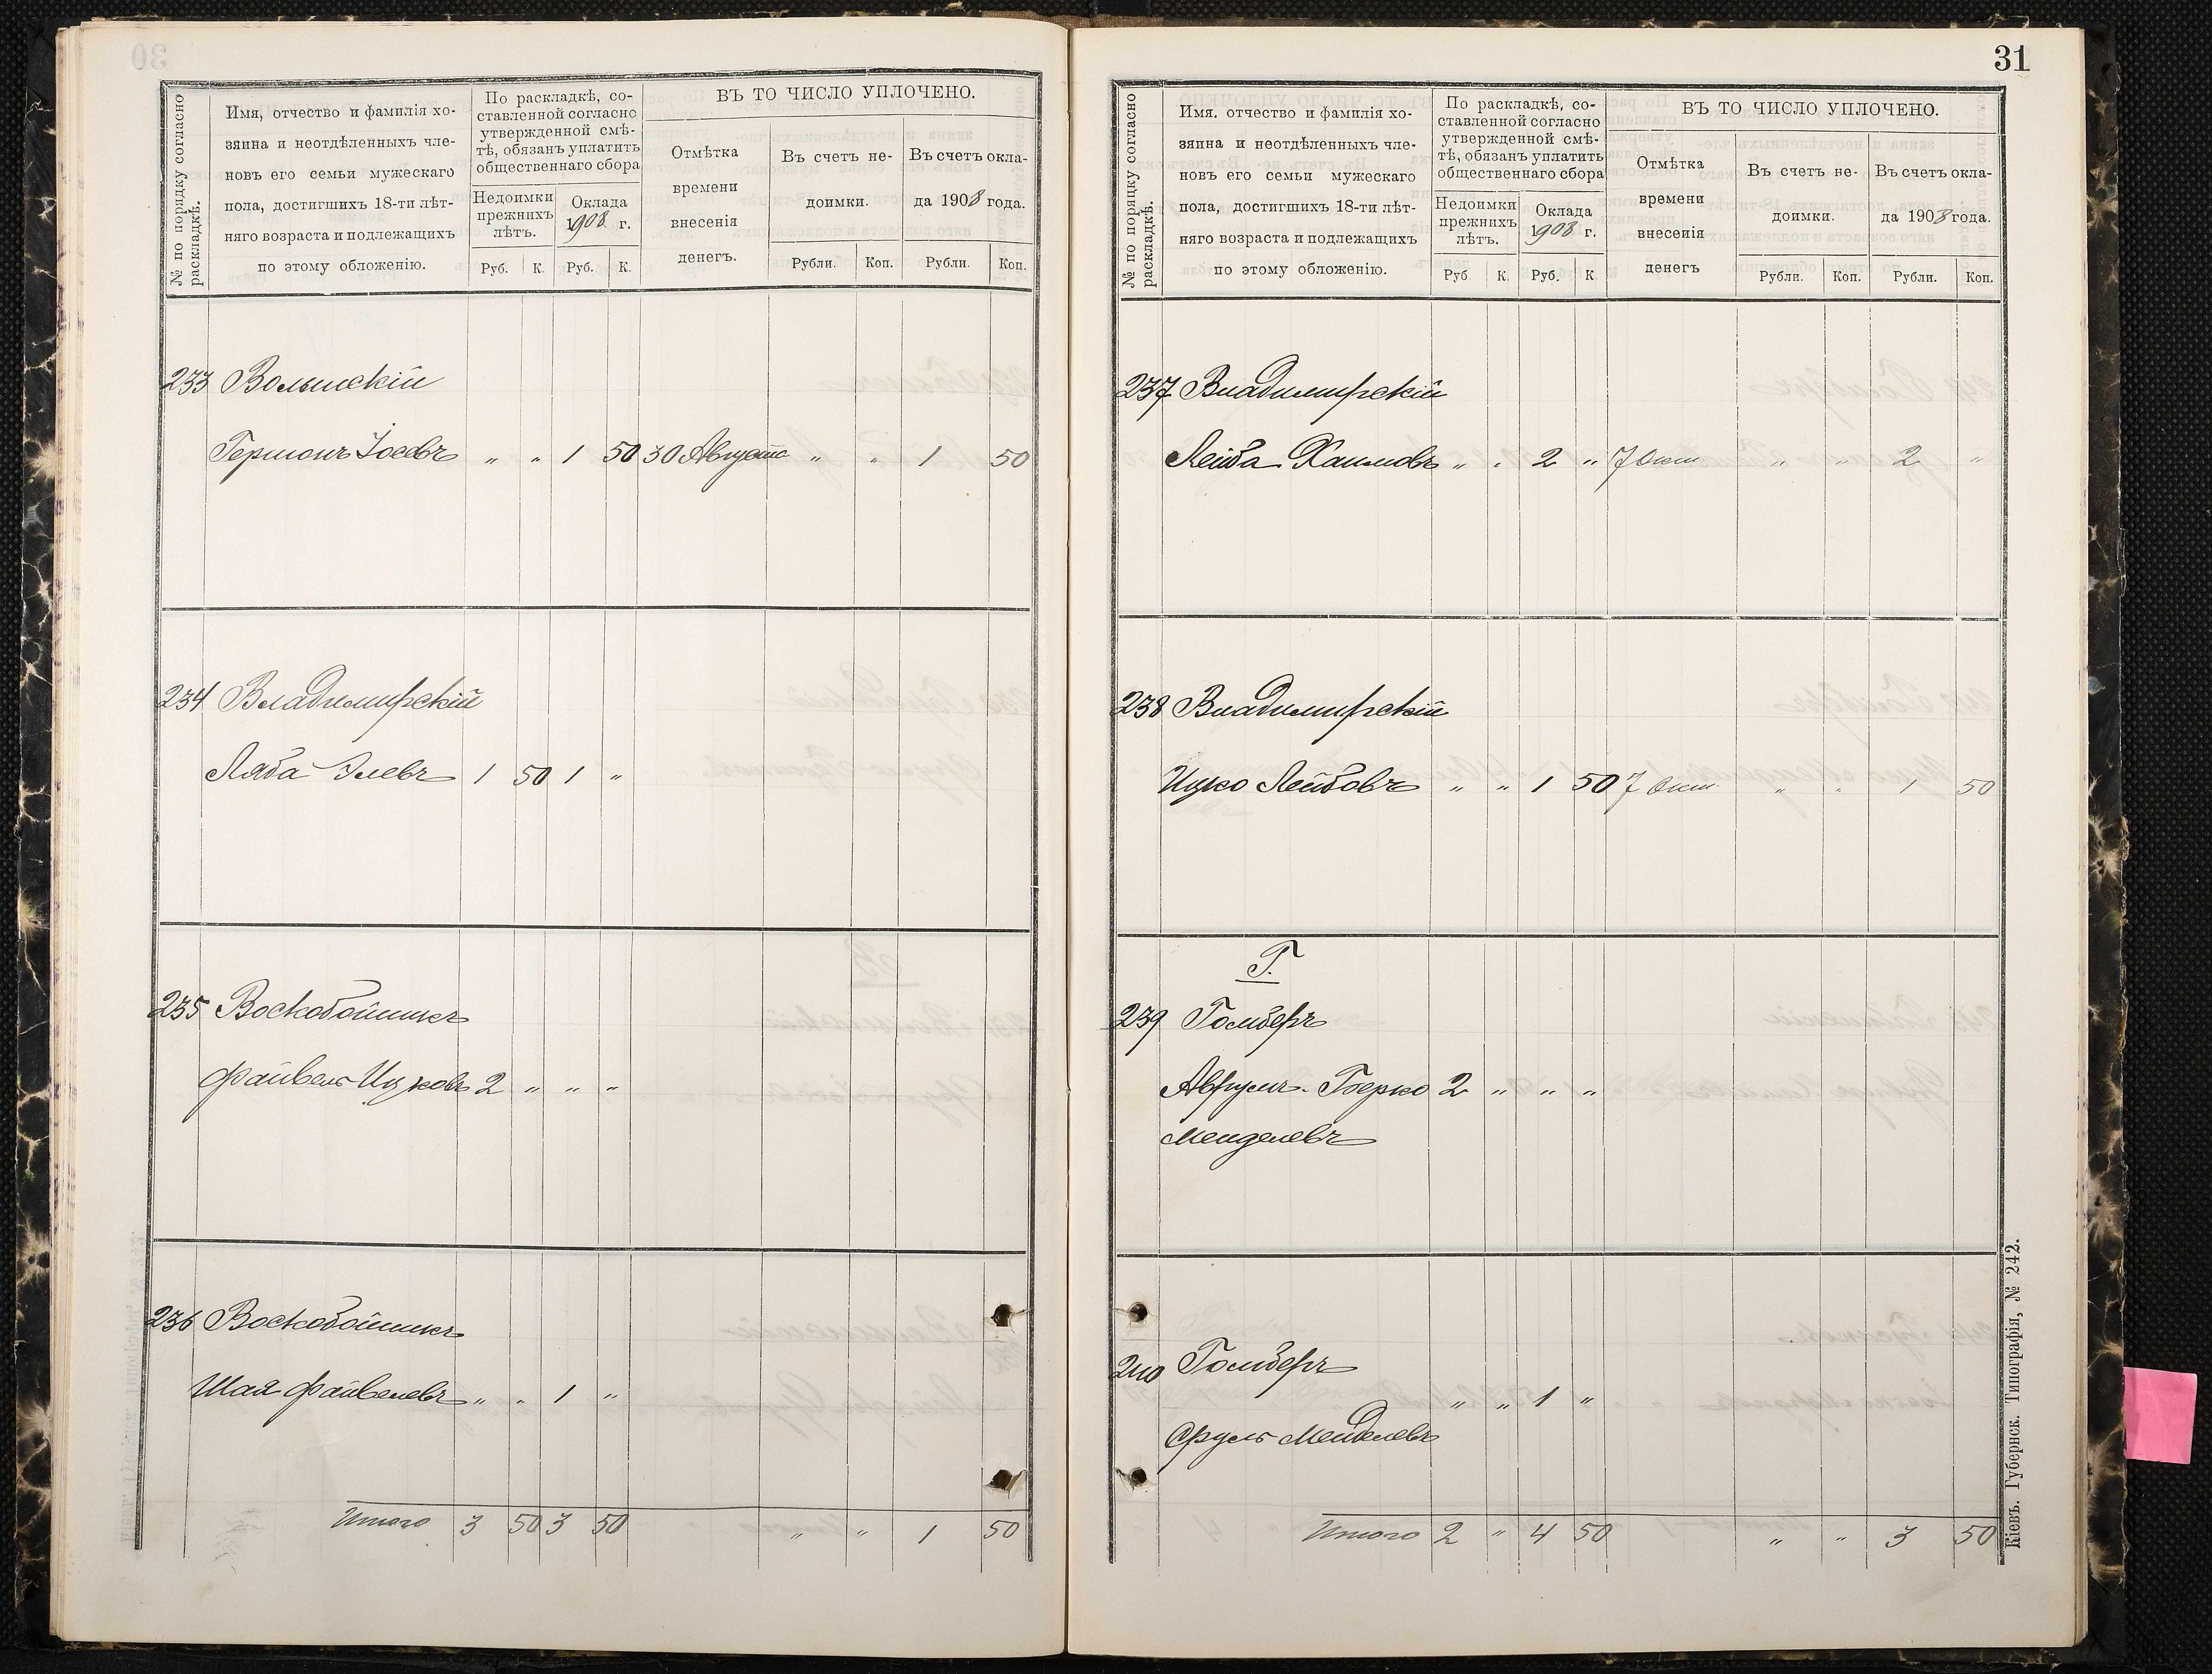 № по порядку согласно раскладкѣ.
Имя, отчество и фамилія хо-
зяина и неотдѣленныхъ чле-
новъ его семьи мужескаго
пола, достигшихъ 18-ти лѣт-
няго возраста и подлежащихъ
по этому обложенію.
По раскладкѣ, со-
ставленной согласно
утвержденной смѣ-
тѣ, обязанъ уплатить
общественнаго сбора
Недоимки прежнихъ лѣтъ.
Оклада 1908 г.
Руб. К. Руб. К.
ВЪ ТО ЧИСЛО УПЛОЧЕНО.
Отмѣтка
времени
внесенія
денегъ.
Въ счетъ не-
доимки.
Въ счетъ окла-
да 1908 года.
Рубли. Коп. Рубли. Коп.
233 Волынскій
Гершонъ Іосевъ " " 1 50 30 Августа " " 1 50
234 Владимирскій
Ляба Элевъ 1 50 1 "
235 Воскобойникъ
Файвель Ицковъ 2 " " "
236 Воскобойникъ
Шая Файвелевъ " " 1 "
Итого 3 50 3 50 " " 1 50
31
№ по порядку согласно раскладкѣ.
Имя. отчество и фамилія хо-
зяина и неотдѣленныхъ чле-
новъ его семьи мужескаго
пола, достигшихъ 18-ти лѣт-
няго возраста и подлежащихъ
по этому обложенію.
По раскладкѣ, со-
ставленной согласно
утвержденной смѣ-
тѣ, обязанъ уплатить
общественнаго сбора
Недоимки прежнихъ лѣтъ.
Оклада 1908 г.
Руб. К. Руб. К.
ВЪ ТО ЧИСЛО УПЛОЧЕНО.
Отмѣтка
времени
внесенія
денегъ
Въ счетъ не-
доимки.
Въ счетъ окла-
да 1908 года.
Рубли. Коп. Рубли. Коп.
237 Владимирскій
Лейба Хаимовъ " " 2 " 7 Окт " " 2 "
238 Владимирскій
Ицко Лейбовъ " " 1 50 7 Окт. " " 1 50
Г.
239 Голберъ
Аврумъ-Берко 2 " " "
Менделевъ
240 Голберъ
" " 1 "
Сруль Менделевъ
Итого 2 " 4 50 " " 3 50
Кіевъ. Губернск. Типографія, № 242.